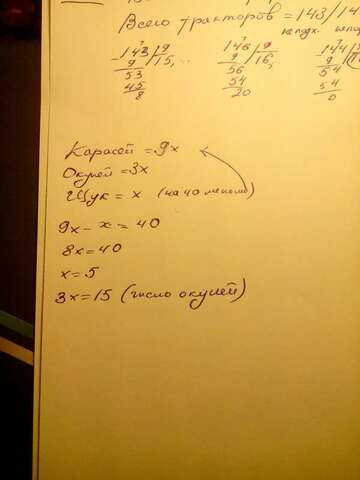 Всего тракторов = 143/14
143 | 9
9 | 15,
53
45
8
146 | 9
9 | 16,
56
54
20
144
9
54
54
0
Карасей = 9х
Окуней = 3х
Щук = х (на 40 меньше)
9х - х = 40
8х = 40
х = 5
3х = 15 (число окуней)